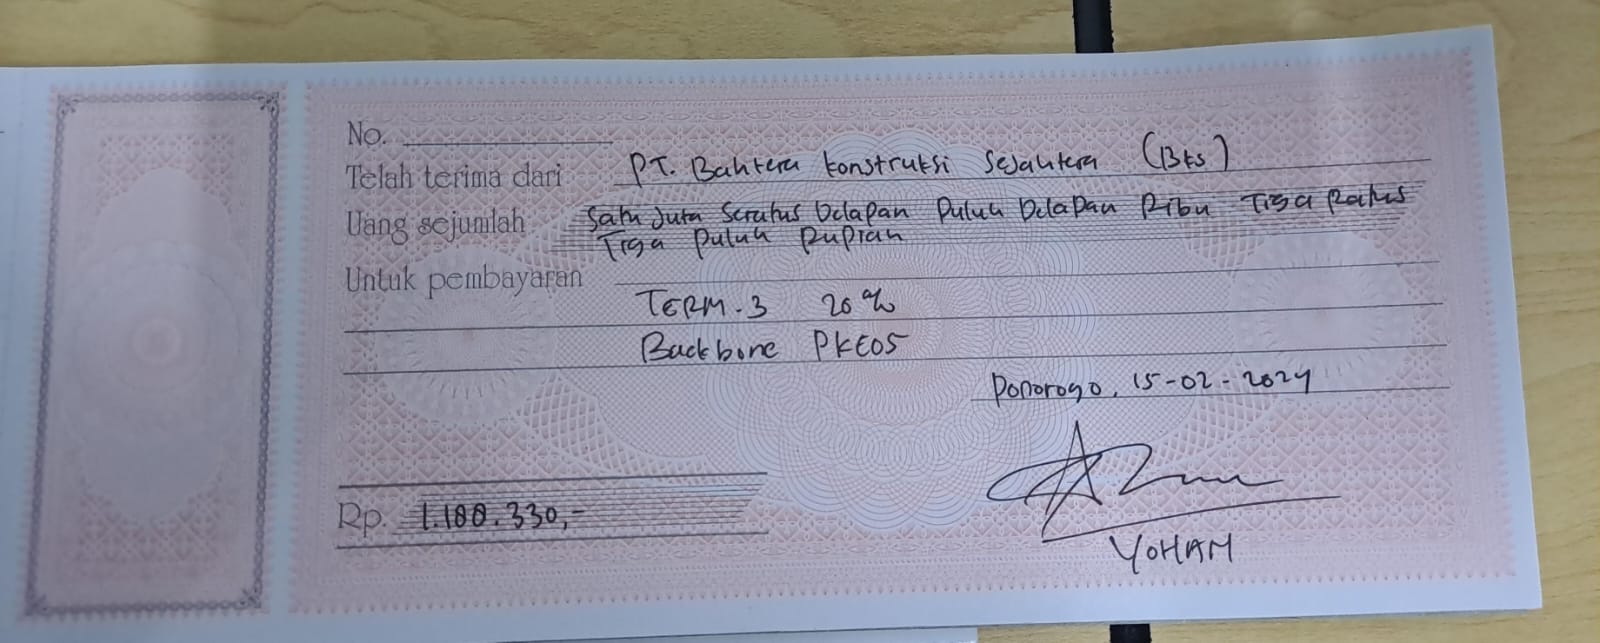 No.
Telah terima dari PT. Bahtera Konstruksi Sejahtera (Bks)
Uang sejumlah Satu Juta Seratus Delapan Puluh Delapan Ribu Tiga Ratus
Tiga Puluh Rupiah
Untuk pembayaran
TERM-3 20%
Backbone PKE05
Ponorogo, 15-02-2024
Rp. 1.188.330,-
YOHAM